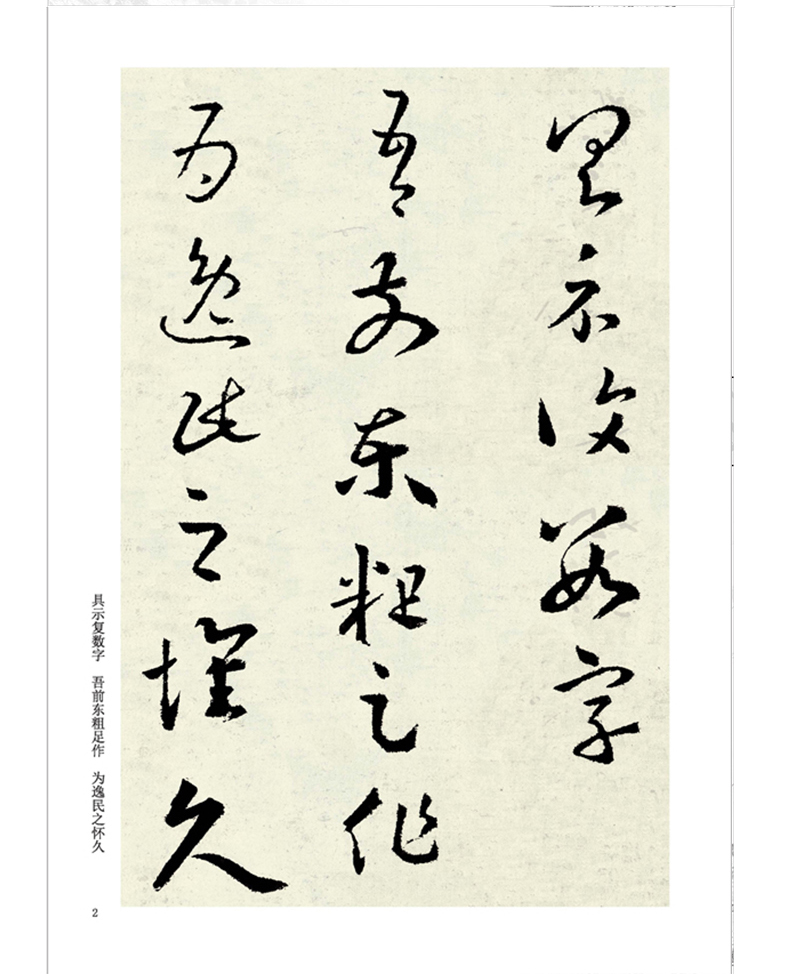 具示復數字
吾前東粗足作
為逸民之懷久
具示复数字　吾前东粗足作　为逸民之怀久
2